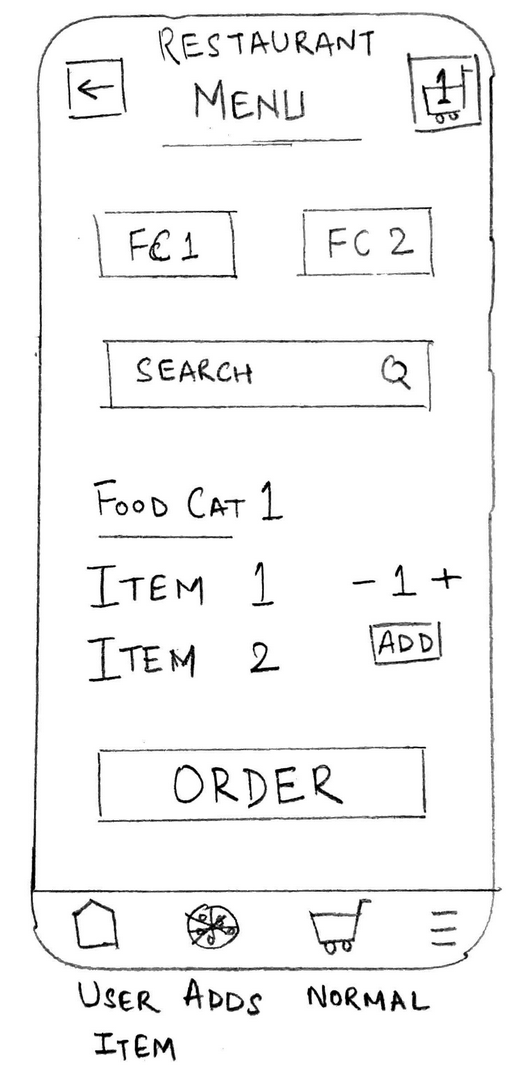 RESTAURANT
MENU
1
FC 1 FC 2
SEARCH
FOOD CAT 1
ITEM 1 - 1 +
ITEM 2 ADD
ORDER
USER ADDS NORMAL
ITEM